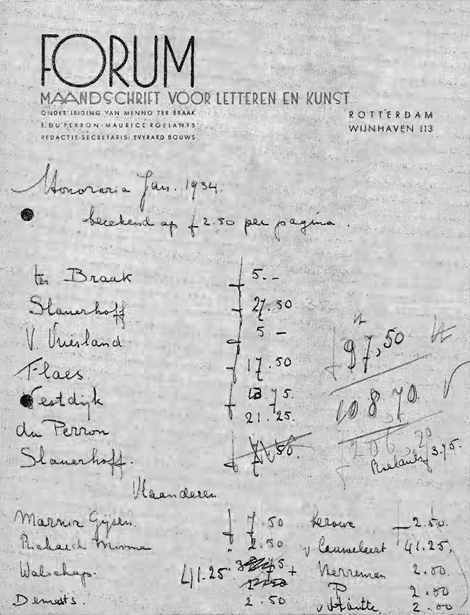 FORUM
MAANDSCHRIFT VOOR LETTEREN EN KUNST
ONDER LEIDING VAN MENNO TER BRAAK
E. DU PERRON - MAURICE ROELANTS
REDACTIE-SECRETARIS: EVERARD BOUWS
ROTTERDAM
WIJNHAVEN 113
Honoraria Jan. 1934.
berekend op f 2.50 per pagina.
ter Braak f 5.-
Slauerhoff 27.50
V. Vriesland 5 -
97,50
Elaes f 17.50
Vestdijk 13.75.
108,70
21.25.
du Perron
206,20
Slauerhoff.
Roelants 3.75.
Vlaanderen
Marnix Gijsen. f 7.50
2.50.
Richard Minne 2.50
v Cauwelaert 41.25,
Walschap. 41.25.
Herreman 2.50.
Demedts. 2.50
2.50
2.50